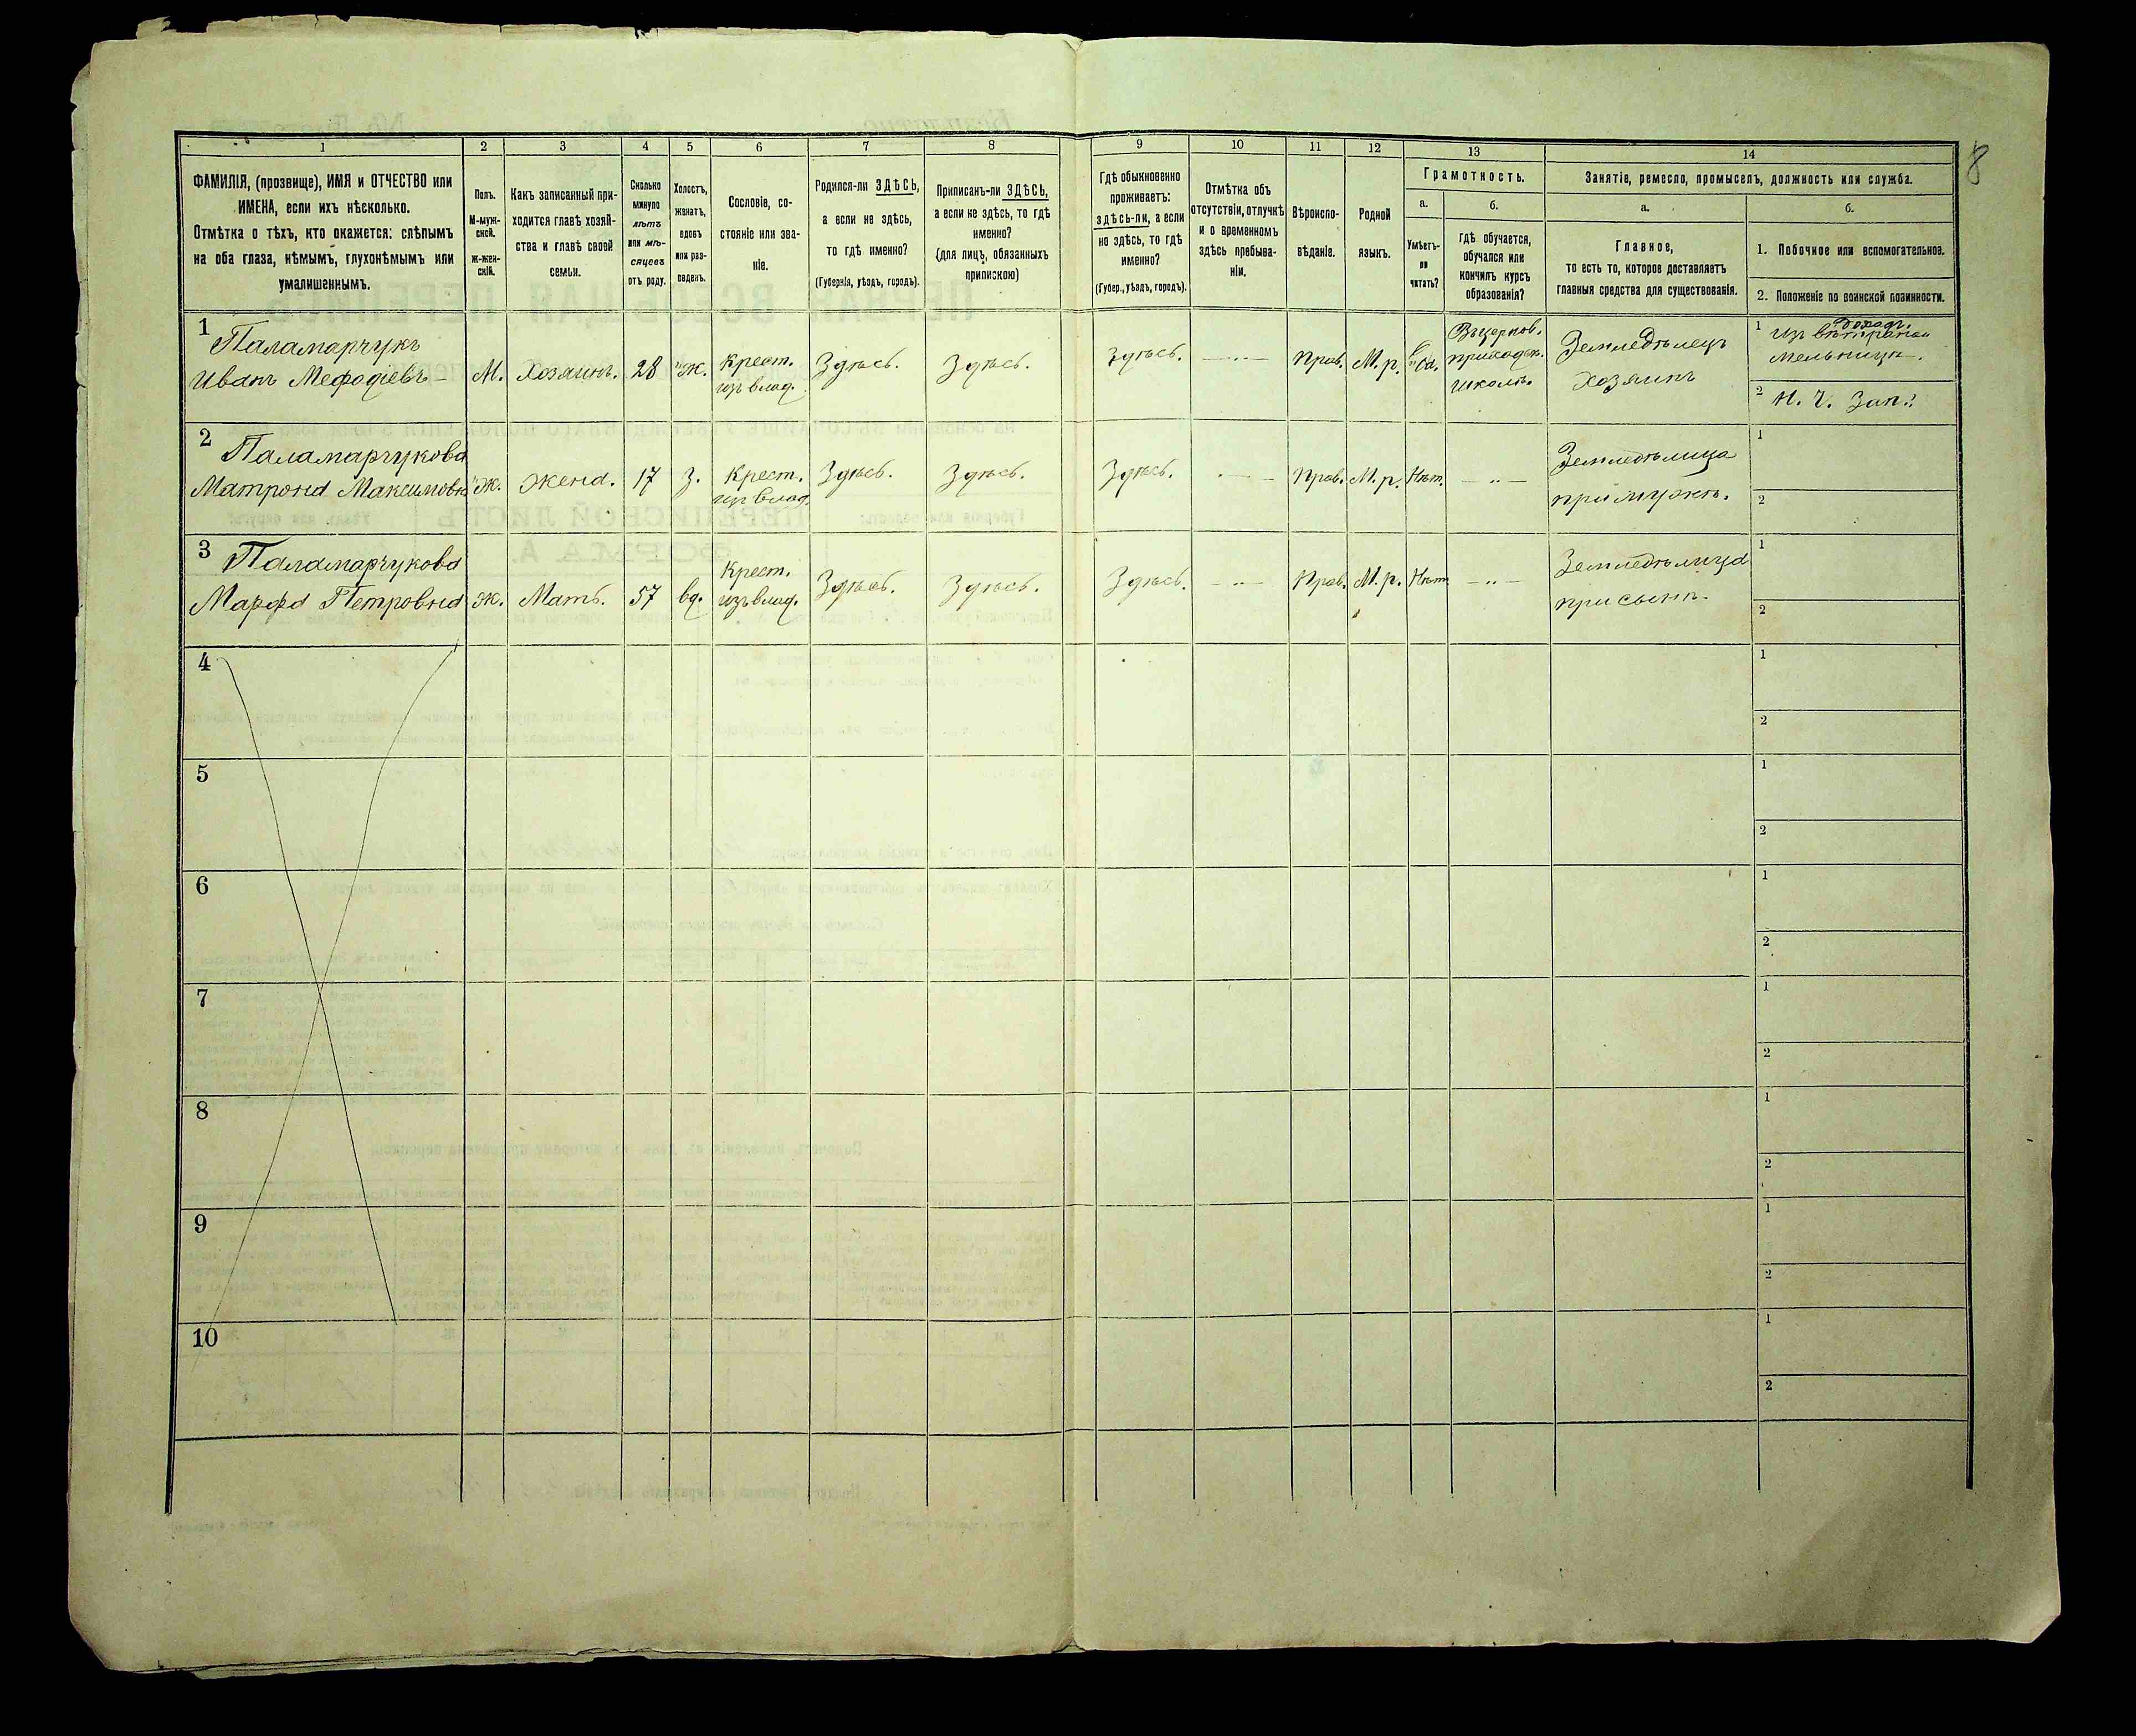 8
1 2 3 4 5 6 7 8 9 10 11 12 13 14
ФАМИЛІЯ, (прозвище), ИМЯ и ОТЧЕСТВО или
ИМЕНА, если ихъ нѣсколько.
Отмѣтка о тѣхъ, кто окажется: слѣпымъ
на оба глаза, нѣмымъ, глухонѣмымъ или
умалишеннымъ.
Полъ.
М-муж-
ской.
ж-жен-
скій.
Какъ записанный при-
ходится главѣ хозяй-
ства и главѣ своей
семьи.
Сколько
минуло
лѣтъ
или мѣ-
сяцевъ
отъ роду.
Холостъ,
женатъ,
вдовъ
или раз-
веденъ.
Сословіе, со-
стояніе или зва-
ніе.
Родился-ли ЗДѢСЬ,
а если не здѣсь,
то гдѣ именно?
(Губернія, уѣздъ, городъ).
Приписанъ-ли ЗДѢСЬ,
а если не здѣсь, то гдѣ
именно?
(для лицъ, обязанныхъ
припискою)
Гдѣ обыкновенно
проживаетъ:
здѣсь-ли, а если
не здѣсь, то гдѣ
именно?
(Губер., уѣздъ, городъ).
Отмѣтка объ
отсутствіи, отлучкѣ
и о временномъ
здѣсь пребыва-
ніи.
Вѣроиспо-
вѣданіе.
Родной
языкъ.
Грамотность.
а.
Умѣетъ-
ли
читать?
б.
гдѣ обучается,
обучался или
кончилъ курсъ
образованія?
Занятіе, ремесло, промыселъ, должность или служба.
а.
Главное,
то есть то, которое доставляетъ
главныя средства для существованія.
б.
1. Побочное или вспомогательное.
2. Положеніе по воинской повинности.
1
Паламарчукъ
Иванъ Мефодіевъ
М.
Хозяинъ.
28
Ж.
Крест.
изъ влад.
Здѣсь.
Здѣсь.
Здѣсь.
— „ —
Прав.
М. р.
Да.
Вцерков.
приходск.
школѣ.
Земледѣлецъ
хозяинъ
1
доходъ.
изъ вѣтряной
мельницы.
2 Н. Ч. Зап.
2
Паламарчукова
Матрона Максимовна
Ж.
Жена.
17
З.
Крест.
изъ влад.
Здѣсь.
Здѣсь.
Здѣсь.
— „ —
Прав.
М. р.
Нѣт.
— „ —
Земледѣлица
при мужѣ.
1
2
3
Паламарчукова
Марфа Петровна
Ж.
Мать.
57
вд.
Крест.
изъ влад.
Здѣсь.
Здѣсь.
Здѣсь.
— „ —
Прав.
М. р.
Нѣт.
— „ —
Земледѣлица
при сынѣ.
1
2
4
1
2
5
1
2
6
1
2
7
1
2
8
1
2
9
1
2
10
1
2